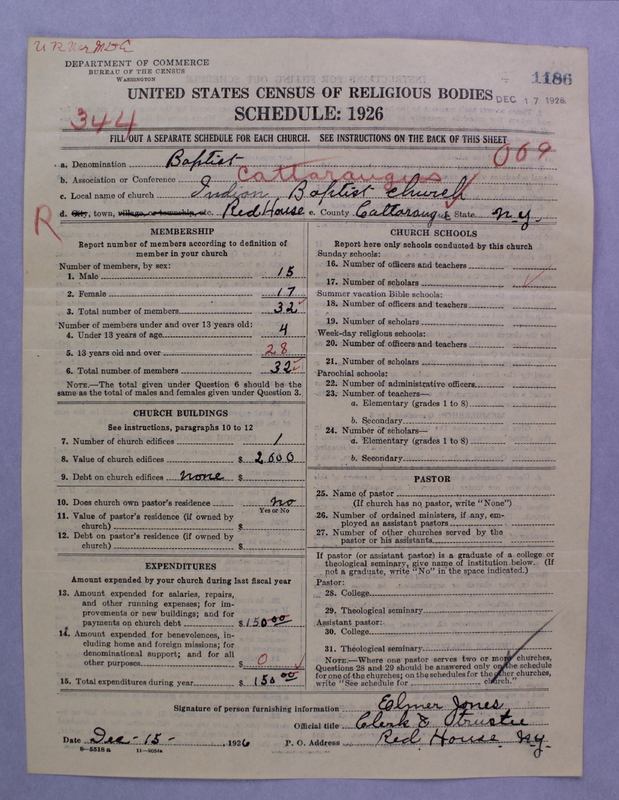 DEPARTMENT OF COMMERCE
BUREAU OF THE CENSUS
WASHINGTON
1186
UNITED STATES CENSUS OF RELIGIOUS BODIES
DEC 17 1926
344
SCHEDULE: 1926
FILL OUT A SEPARATE SCHEDULE FOR EACH CHURCH. SEE INSTRUCTIONS ON THE BACK OF THIS SHEET
a. Denomination Baptist 009
b. Association or Conference Cattaraugus
c. Local name of church Indian Baptist Church
R
d. City, town, village, or township, etc. Red House e. County Cattaraugus State N.Y.
MEMBERSHIP
Report number of members according to definition of
member in your church
Number of members, by sex:
1. Male 15
2. Female 17
3. Total number of members 32
Number of members under and over 13 years old:
4. Under 13 years of age 4
5. 13 years old and over 28
6. Total number of members 32
NOTE.—The total given under Question 6 should be the
same as the total of males and females given under Question 3.
CHURCH BUILDINGS
See instructions, paragraphs 10 to 12
7. Number of church edifices 1
8. Value of church edifices $ 2000
9. Debt on church edifices none $
10. Does church own pastor's residence no
Yes or No
11. Value of pastor's residence (if owned by
church) $
12. Debt on pastor's residence (if owned by
church) $
EXPENDITURES
Amount expended by your church during last fiscal year
13. Amount expended for salaries, repairs,
and other running expenses; for im-
provements or new buildings; and for
payments on church debt $ 150 00
14. Amount expended for benevolences, in-
cluding home and foreign missions; for
denominational support; and for all
other purposes $ 0
15. Total expenditures during year $ 150 00
CHURCH SCHOOLS
Report here only schools conducted by this church
Sunday schools:
16. Number of officers and teachers
17. Number of scholars
Summer vacation Bible schools:
18. Number of officers and teachers
19. Number of scholars
Week-day religious schools:
20. Number of officers and teachers
21. Number of scholars
Parochial schools:
22. Number of administrative officers
23. Number of teachers—
a. Elementary (grades 1 to 8)
b. Secondary
24. Number of scholars—
a. Elementary (grades 1 to 8)
b. Secondary
PASTOR
25. Name of pastor
(If church has no pastor, write "None")
26. Number of ordained ministers, if any, em-
ployed as assistant pastors
27. Number of other churches served by the
pastor or his assistants
If pastor (or assistant pastor) is a graduate of a college or
theological seminary, give name of institution below. (If
not a graduate, write "No" in the space indicated.)
Pastor:
28. College
29. Theological seminary
Assistant pastor:
30. College
31. Theological seminary
NOTE.—Where one pastor serves two or more churches,
Questions 28 and 29 should be answered only on the schedule
for one of the churches; on the schedules for the other churches,
write "See schedule for church."
Signature of person furnishing information Elmer Jones
Official title Clerk & Trustee
Date Dec - 15 - , 1926 P. O. Address Red House N.Y.
8—5518 a